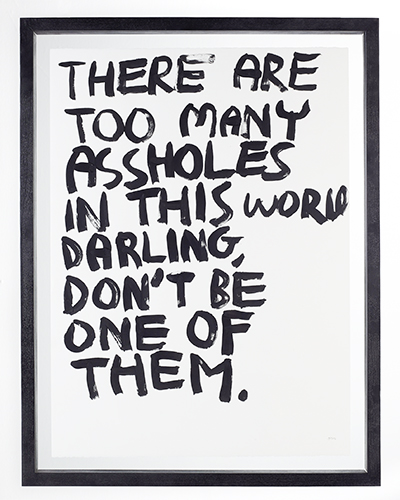 THERE ARE
TOO MANY
ASSHOLES
IN THIS WORLD
DARLING,
DON'T BE
ONE OF
THEM.